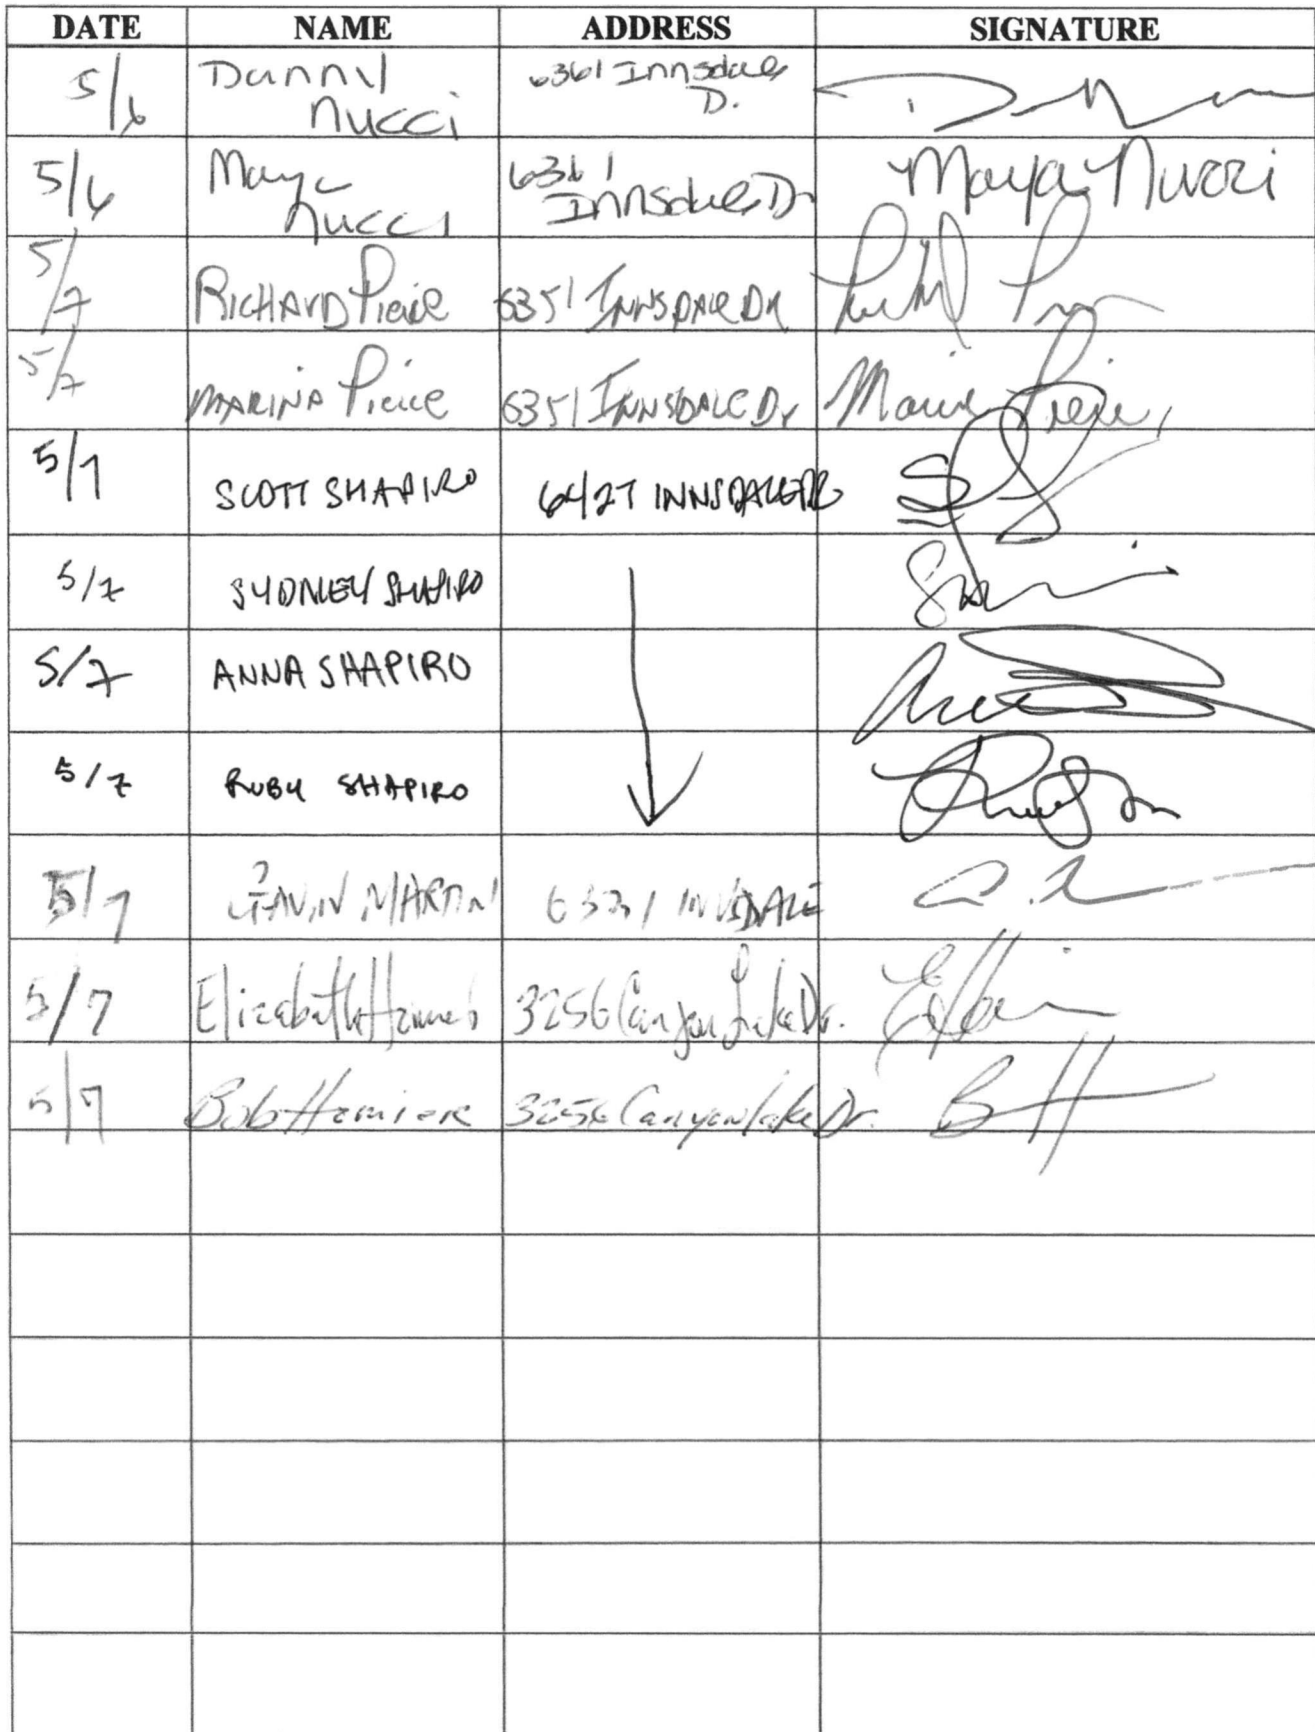 DATE NAME ADDRESS SIGNATURE
5/6 Danny Nucci 6361 Innsdale D.
5/6 Maya Nucci 6361 Innsdale Dr Maya Nucci
5/7 RICHARD Pierce 6351 INNSDALE DR
5/7 MARINA Pierce 6351 INNSDALE Dr
5/7 SCOTT SHAPIRO 6427 INNSDALE DR
5/7 SYDNEY SHAPIRO
5/7 ANNA SHAPIRO
5/7 RUBY SHAPIRO
5/7 GAVIN MARTIN INNSDALE
5/7 Elizabeth 3256 Canyon Lake Dr.
5/7 Bob 3256 Canyon Lake Dr.